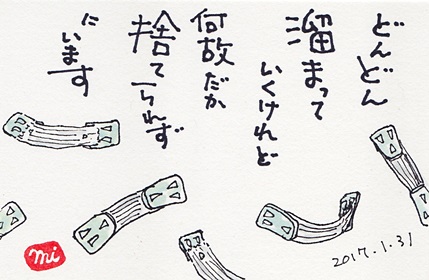 どんどん
溜まって
いくけれど
何故だか
捨てられず
にいます
2017.1.31
mi